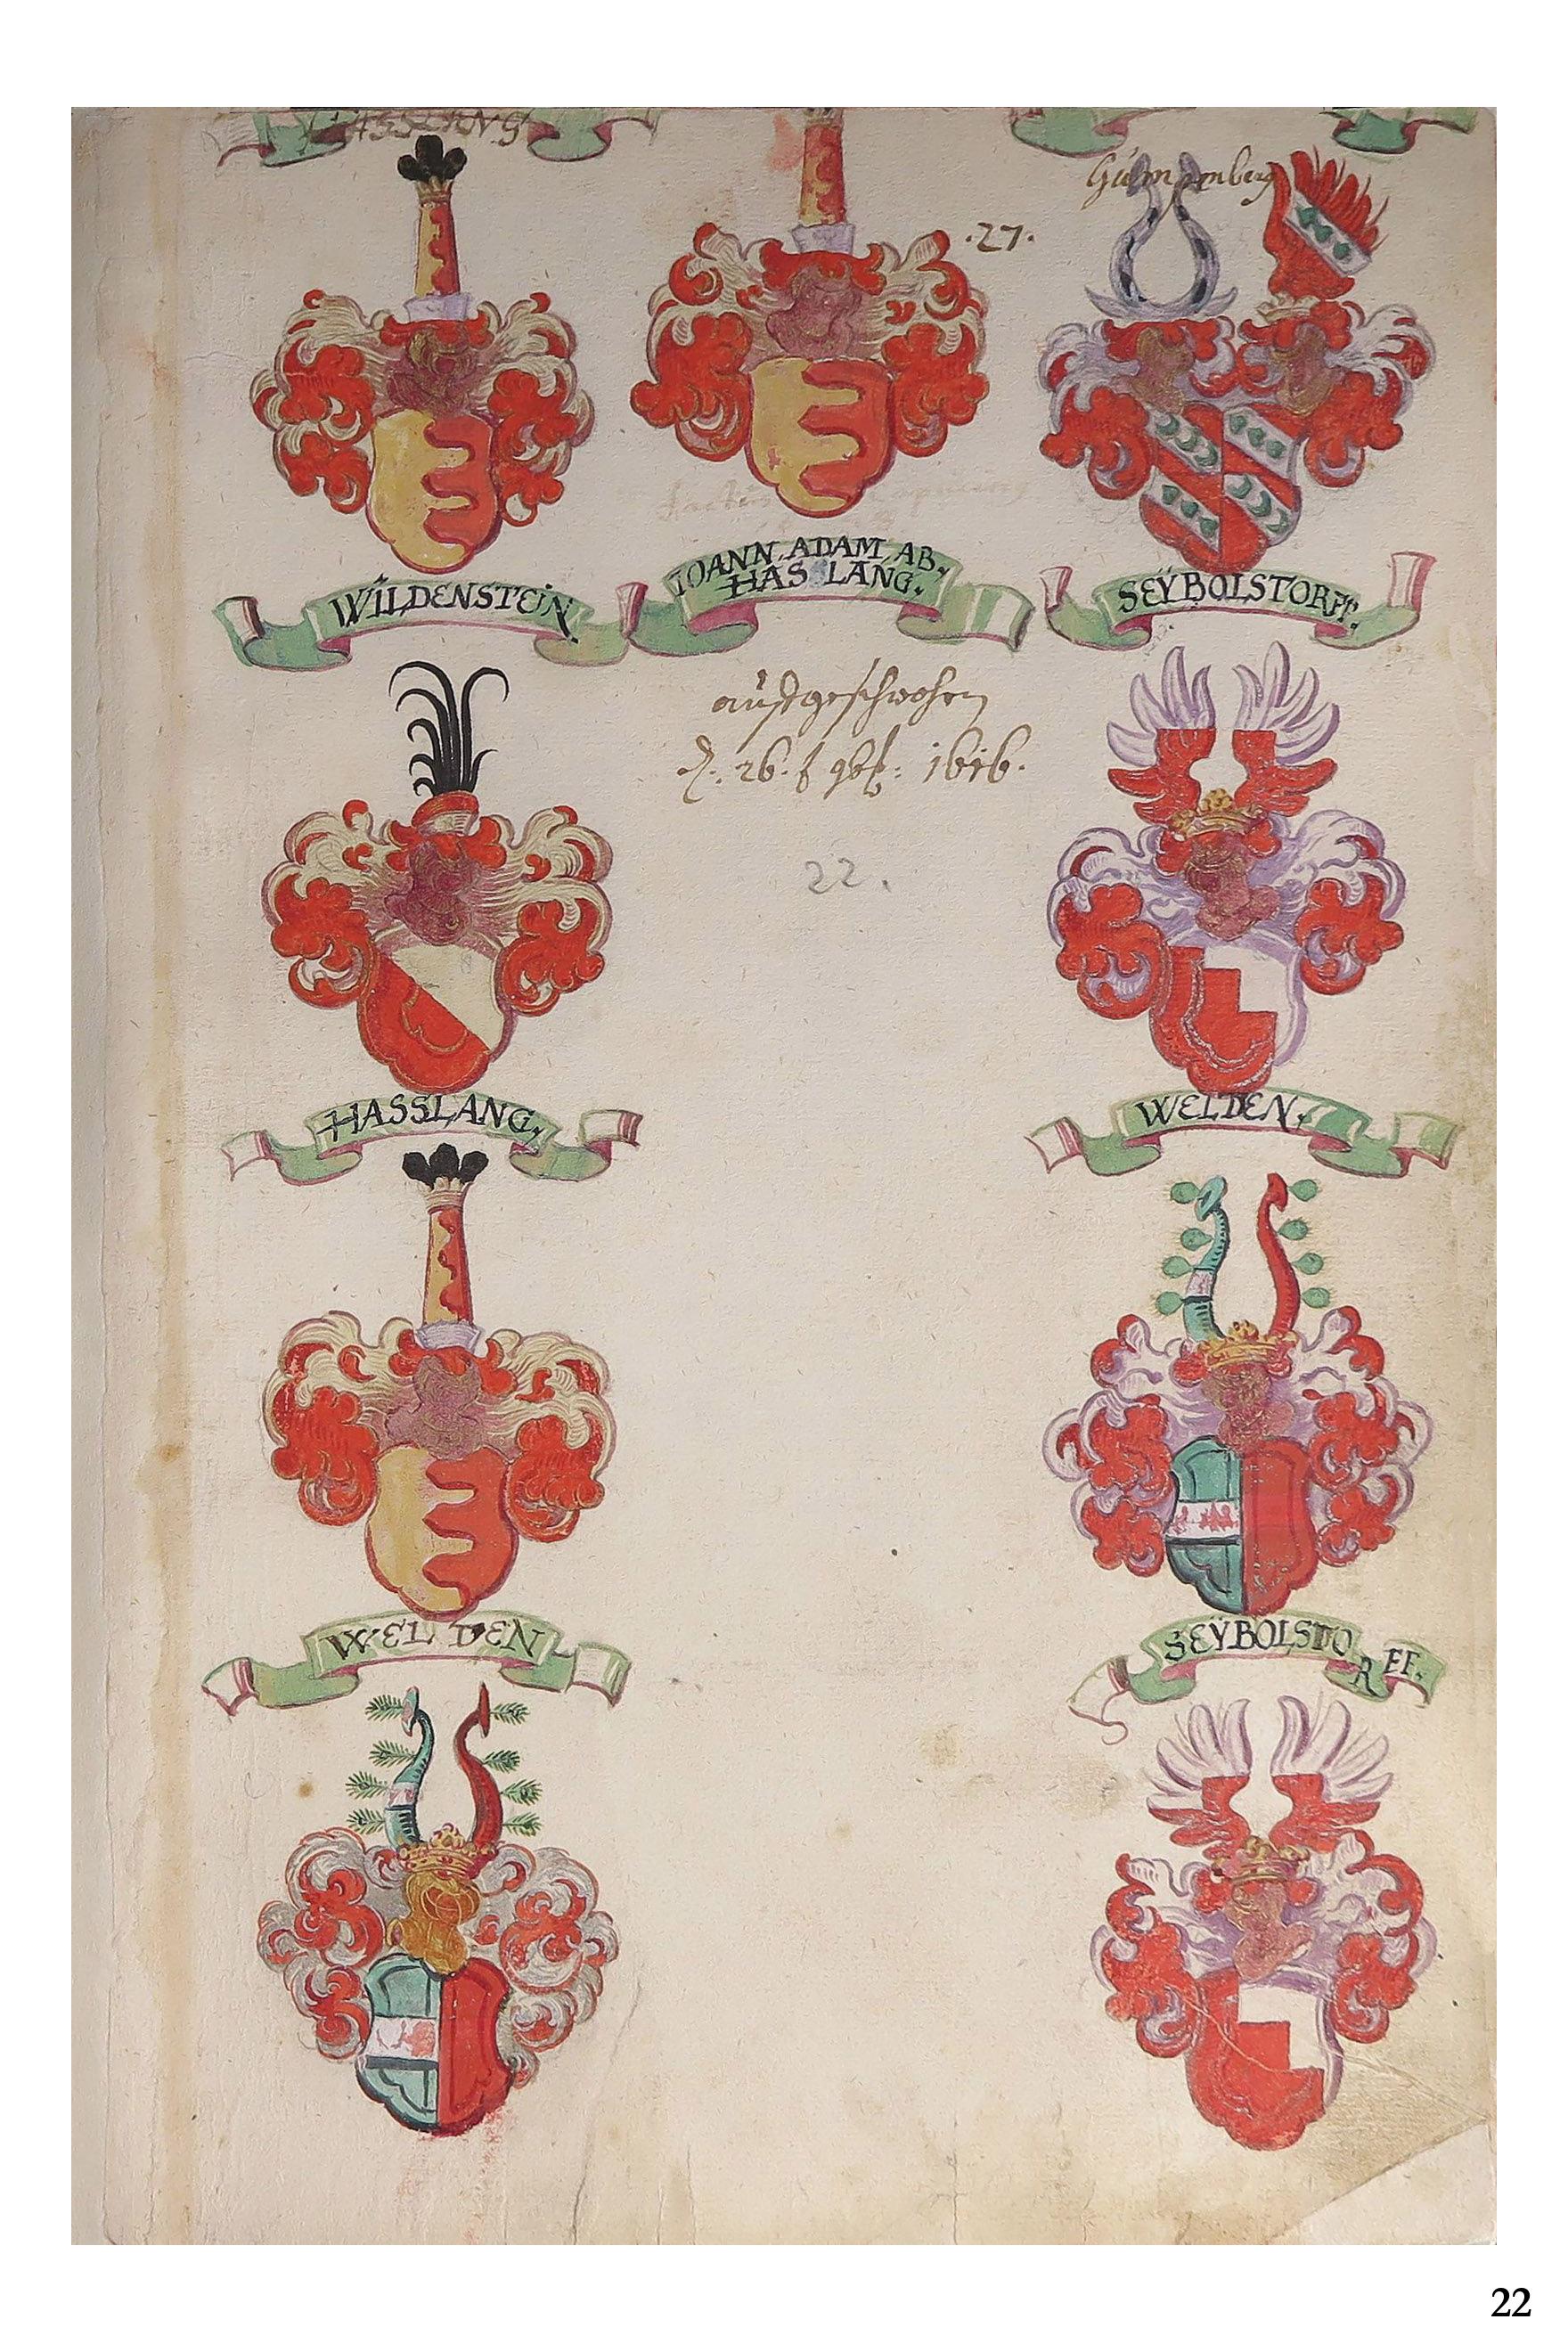 HASSLANG
Gumppenberg
.27.
WILDENSTEIN.
IOANN ADAM AB.
HASSLANG.
SEŸBOLSTORFF.
aufgeschwohren
26. 9bʳ: 1616.
22.
HASSLANG.
WELDEN.
WELDEN
SEŸBOLSTORFF.
22